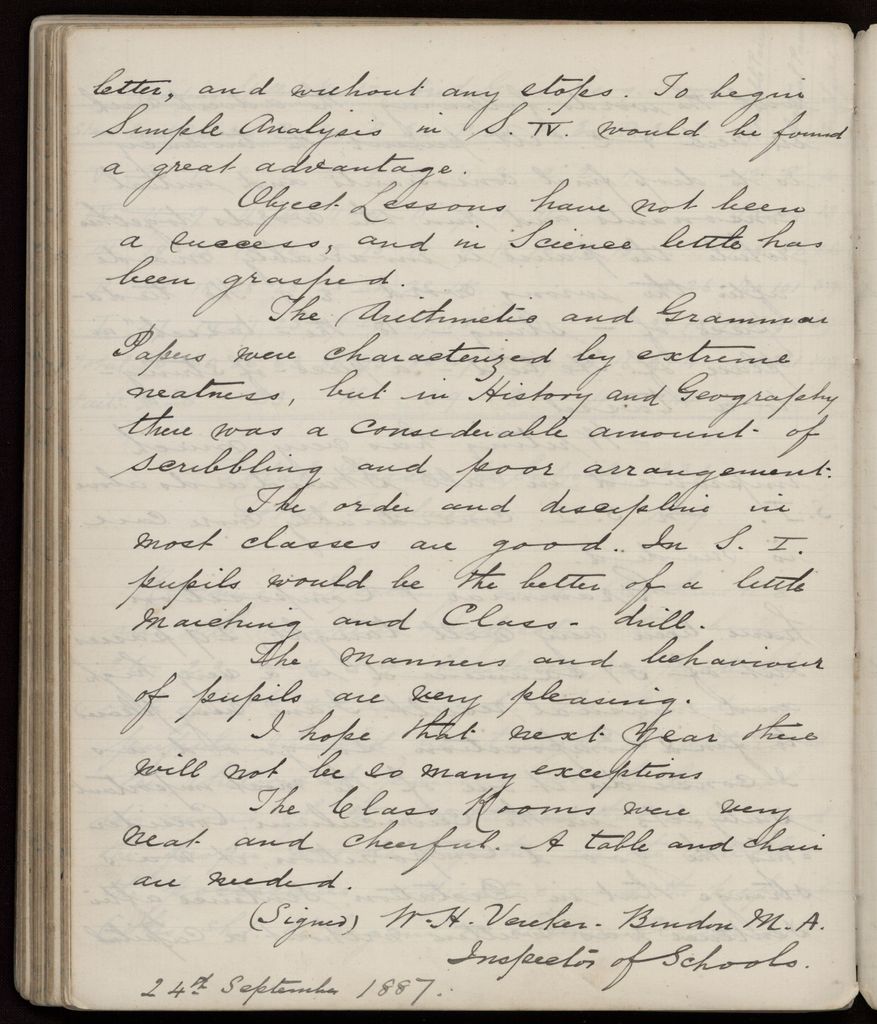 letter, and without any stops. To begin
Simple Analysis in S. IV. would be found
a great advantage.
Object Lessons have not been
a success, and in Science little has
been grasped.
The Arithmetic and Grammar
Papers were characterized by extreme
neatness, but in History and Geography
there was a considerable amount of
scribbling and poor arrangement.
The order and discipline in
most classes are good. In S. I.
pupils would be the better of a little
marching and Class-drill.
The manners and behaviour
of pupils are very pleasing.
I hope that next year there
will not be so many exceptions
The Class Rooms were very
neat and cheerful. A table and chair
are needed.
(Signed) W. H. Vereker-Bindon M. A.
Inspector of Schools.
24th September 1887.